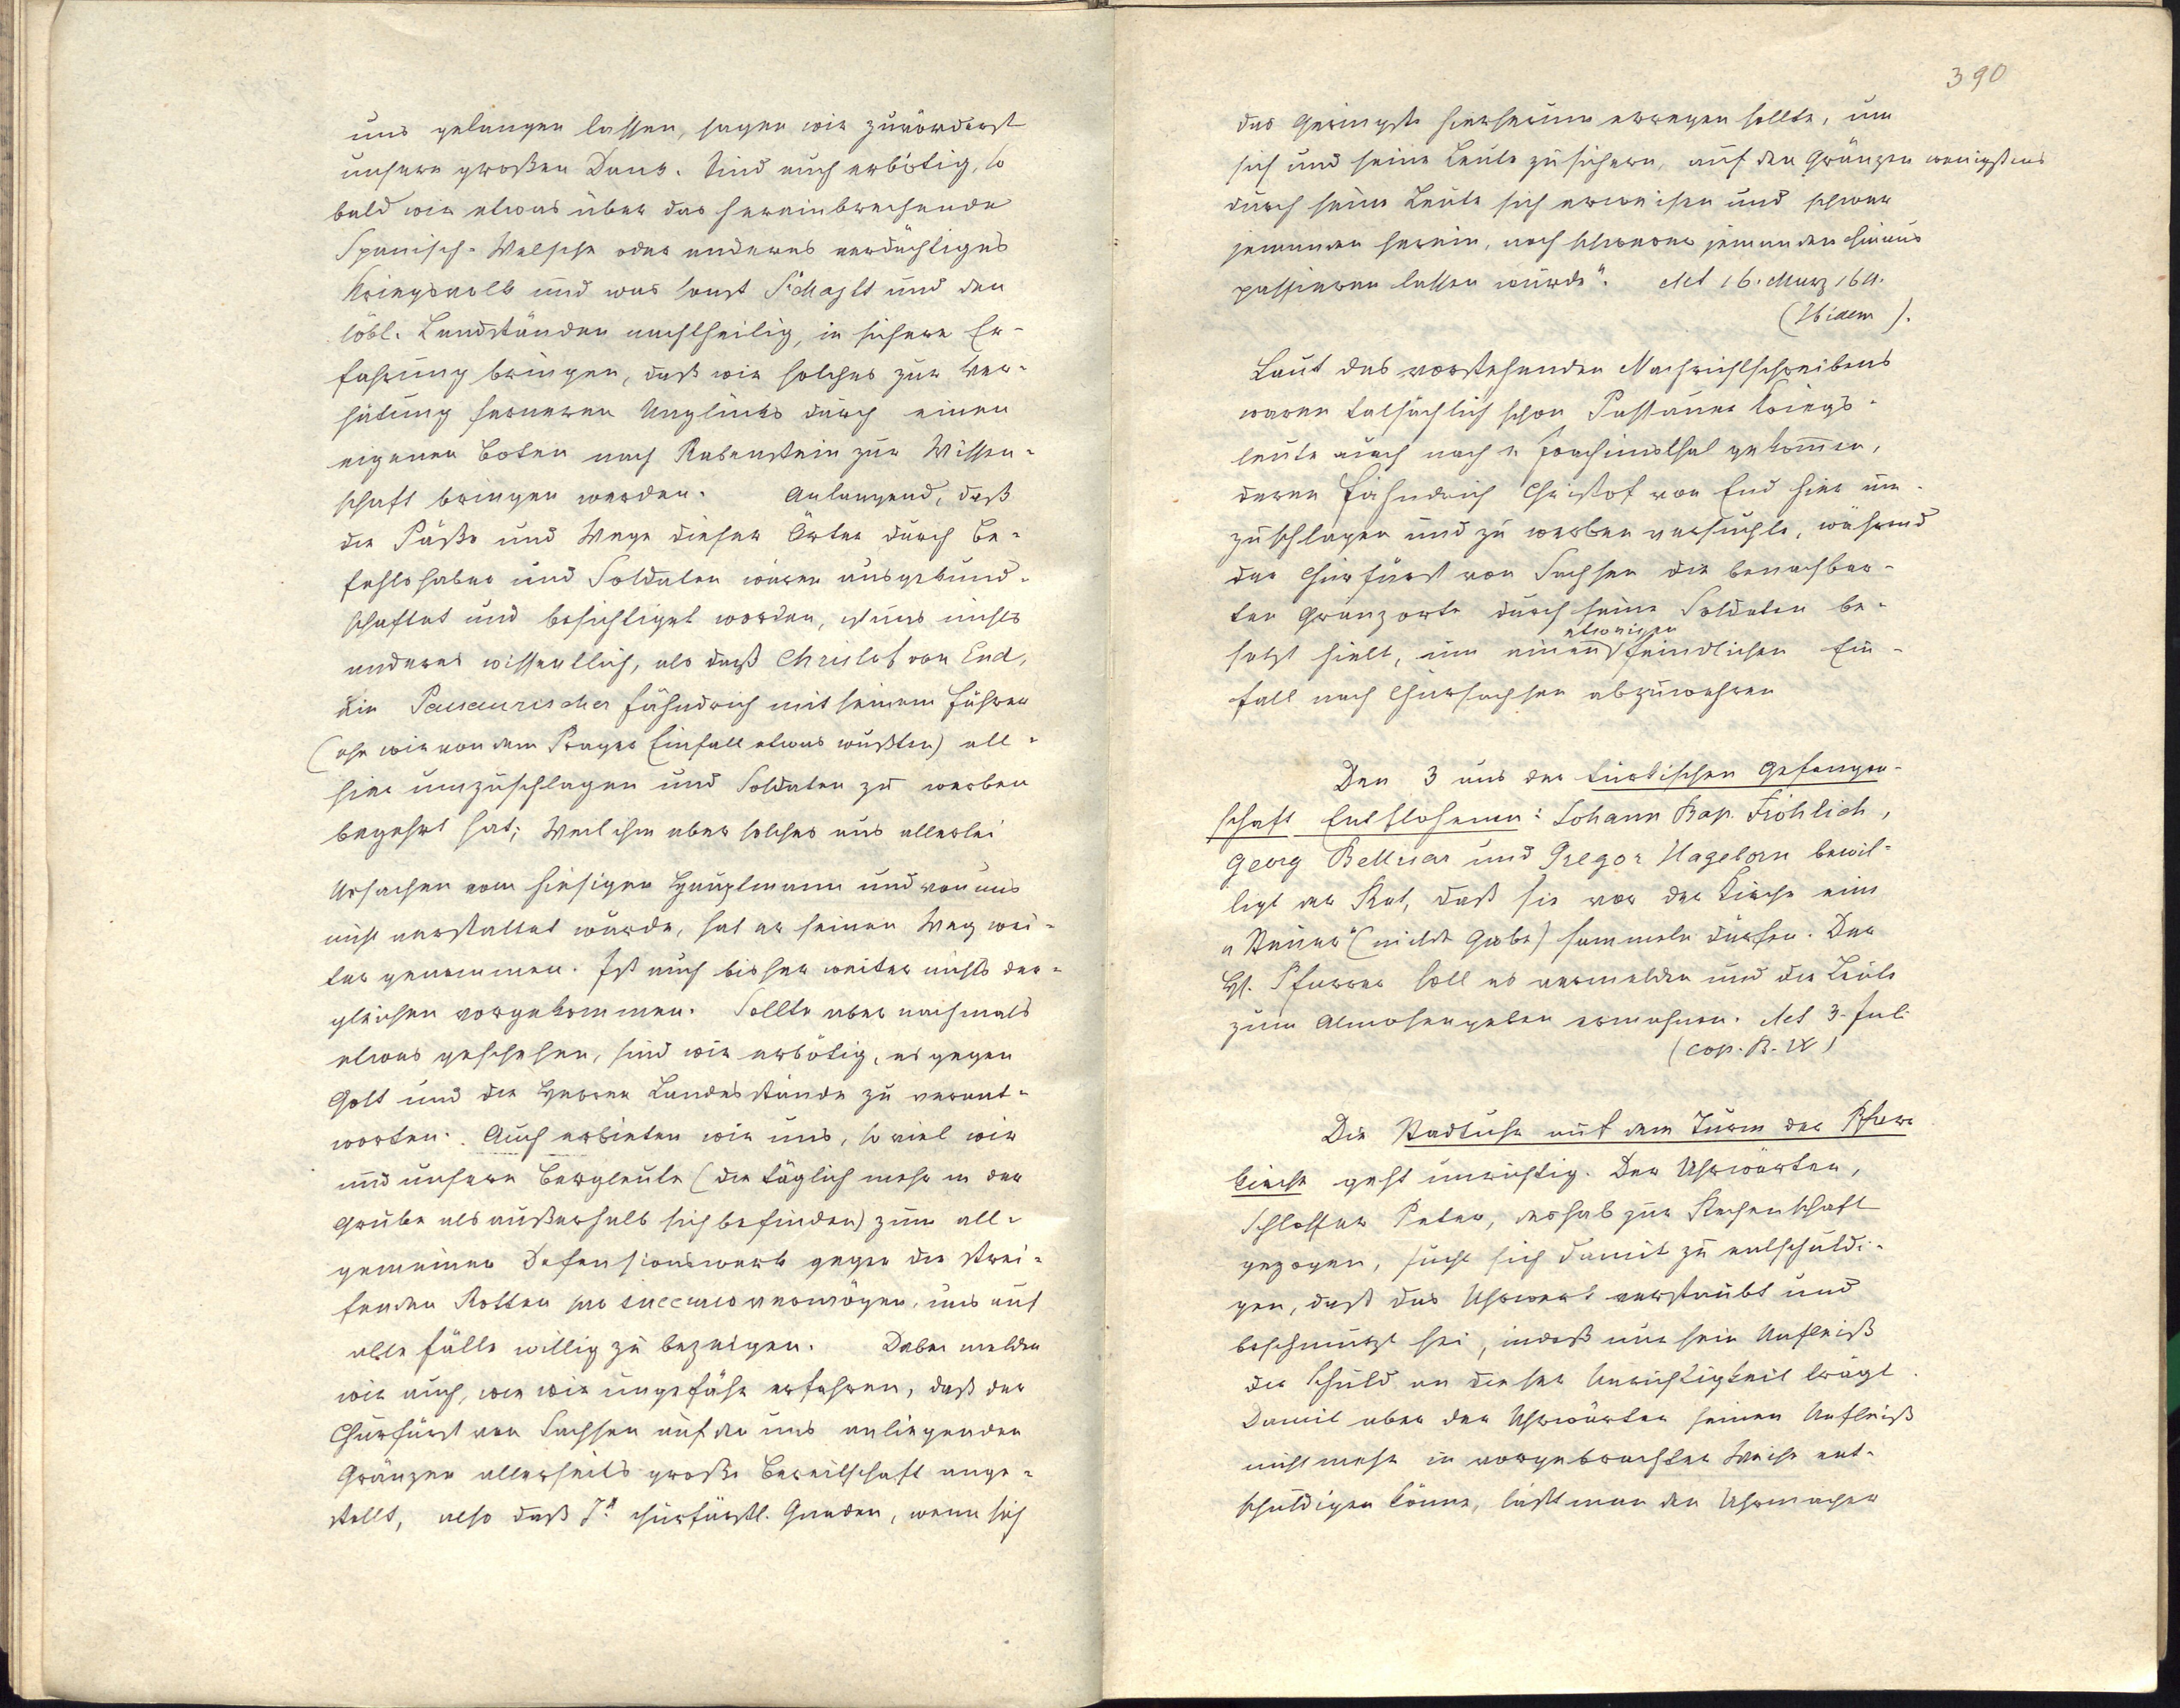 uns gelangen lassen, sagen wir zuvörderst
unsern großen Dank. Sind auch erbötig, so
bald wir etwas über das hereinbrechende
Spanisch-Welsche oder anderes verdächtiges
Kriegsvolk und was sonst Sr Majtt und den
löbl. Landständen nachtheilig, in sichere Er-
fahrung bringen, daß wir solches zur Ver-
hütung ferneren Unglücks durch einen
eigenen Boten nach Rabenstein zur Wissen-
schaft bringen werden. Anlangend, daß
die Päße und Wege dieser Örter durch Be-
fehlshaber und Soldaten wären ausgekund-
schaftet und besichtiget worden, ist uns nichts
anderes wissentlich, als daß Christof von End,
ein Passaurischer Fähndrich mit seinem Führer
(ehe wir von dem Prager Einfall etwas wußten) all-
hier umzuschlagen und Soldaten zu werben
begehrt hat; Weil ihm aber solches aus allerlei
Ursachen vom hiesigen Hauptmann und von uns
nicht verstattet wurde, hat er seinen Weg wei-
ter genommen. Ist auch bisher weiter nichts der-
gleichen vorgekommen. Sollte aber nachmals
etwas geschehen, sind wir erbötig, es gegen
Gott und die Herren Landesstände zu verant-
worten. Auch erbieten wir uns, so viel wir
und unsere Bergleute (die täglich mehr in der
Grube als außerhalb sich befinden) zum all-
gemeinen Defensionswerk gegen die strei-
fenden Rotten pro succurso vermögen, uns auf
alle Fälle willig zu bezeigen. Dabei melden
wir auch, wie wir ungefähr erfahren, daß der
Churfürst von Sachsen auf den uns anliegenden
Gränzen allerseits große Bereitschaft ange-
stellt, also daß Ir churfürstl. Gnaden, wenn sich
390
das Geringste hierherum erregen sollte, um
sich und seine Leute zu sichern, auf den Gränzen wenigstens
durch seine Leute sich erweisen und schwer
jemanden herein, noch schwerer jemanden hinaus
passieren lassen würde". Act 16. März 1611.
(Ibidem).
Laut des vorstehenden Nachrichtschreibens
waren tatsächlich schon Passauer Kriegs-
leute auch nach Joachimsthal gekommen,
deren Fähndrich Christof von End hier um-
zuschlagen und zu werben versuchte, während
der Churfürst von Sachsen die benachbar-
ten Gränzorte durch seine Soldaten be-
setzt hielt, um einen etwaigen feindlichen Ein-
fall nach Chursachsen abzuwehren
Den 3 aus der türkischen Gefangen-
schaft Entflohenen: Johann Bap. Fröhlich,
Georg und Gregor Hagelorn bewil-
ligt der Rat, daß sie vor der Kirche eine
"Steuer" (milde Gabe) sammeln dürfen. Der
H. Pfarrer soll es vermelden und die Leute
zum Almosengeben ermahnen. Act 3. Juli
(cop. B. IX)
Die Stadtuhr auf dem Turm der Pfarr
kirche geht unrichtig. Der Uhrwärter,
Schlosser Peter, deshalb zur Rechenschaft
gezogen, sucht sich damit zu entschuldi-
gen, daß das Uhrwerk verstaubt und
beschmutzt sei, indeß nur sein Unfleiß
die Schuld an dieser Unrichtigkeit trägt.
Damit aber der Uhrwärter seinen Unfleiß
nicht mehr in vorgebrachter Weise ent-
schuldigen könne, läßt man den Uhrmacher